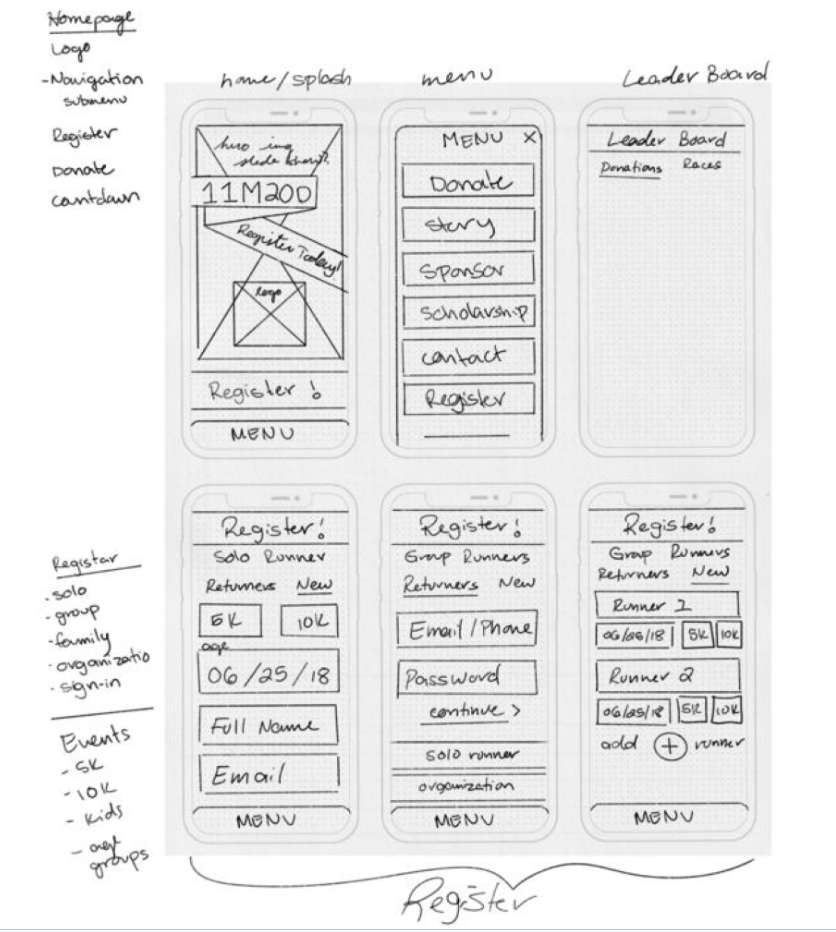 Homepage
Logo
-Navigation
submenu
Register
Donate
countdown
home/splash
hero img
11M20D
Register Today!
logo
Register !
MENU
menu
MENU X
Donate
story
Sponsor
Scholarship
contact
Register
Leader Board
Leader Board
Donations Races
Registar
-solo
-group
-family
-organizatio
-sign-in
Events
-5K
-10K
- Kids
- age
groups
Register!
Solo Runner
Returners New
5K 10K
age
06/25/18
Full Name
Email
MENU
Register!
Group Runners
Returners New
Email/Phone
Password
continue >
solo runner
organization
MENU
Register!
Group Runners
Returners New
Runner 1
06/25/18 5K 10K
Runner 2
06/25/18 5K 10K
add + runner
MENU
Register